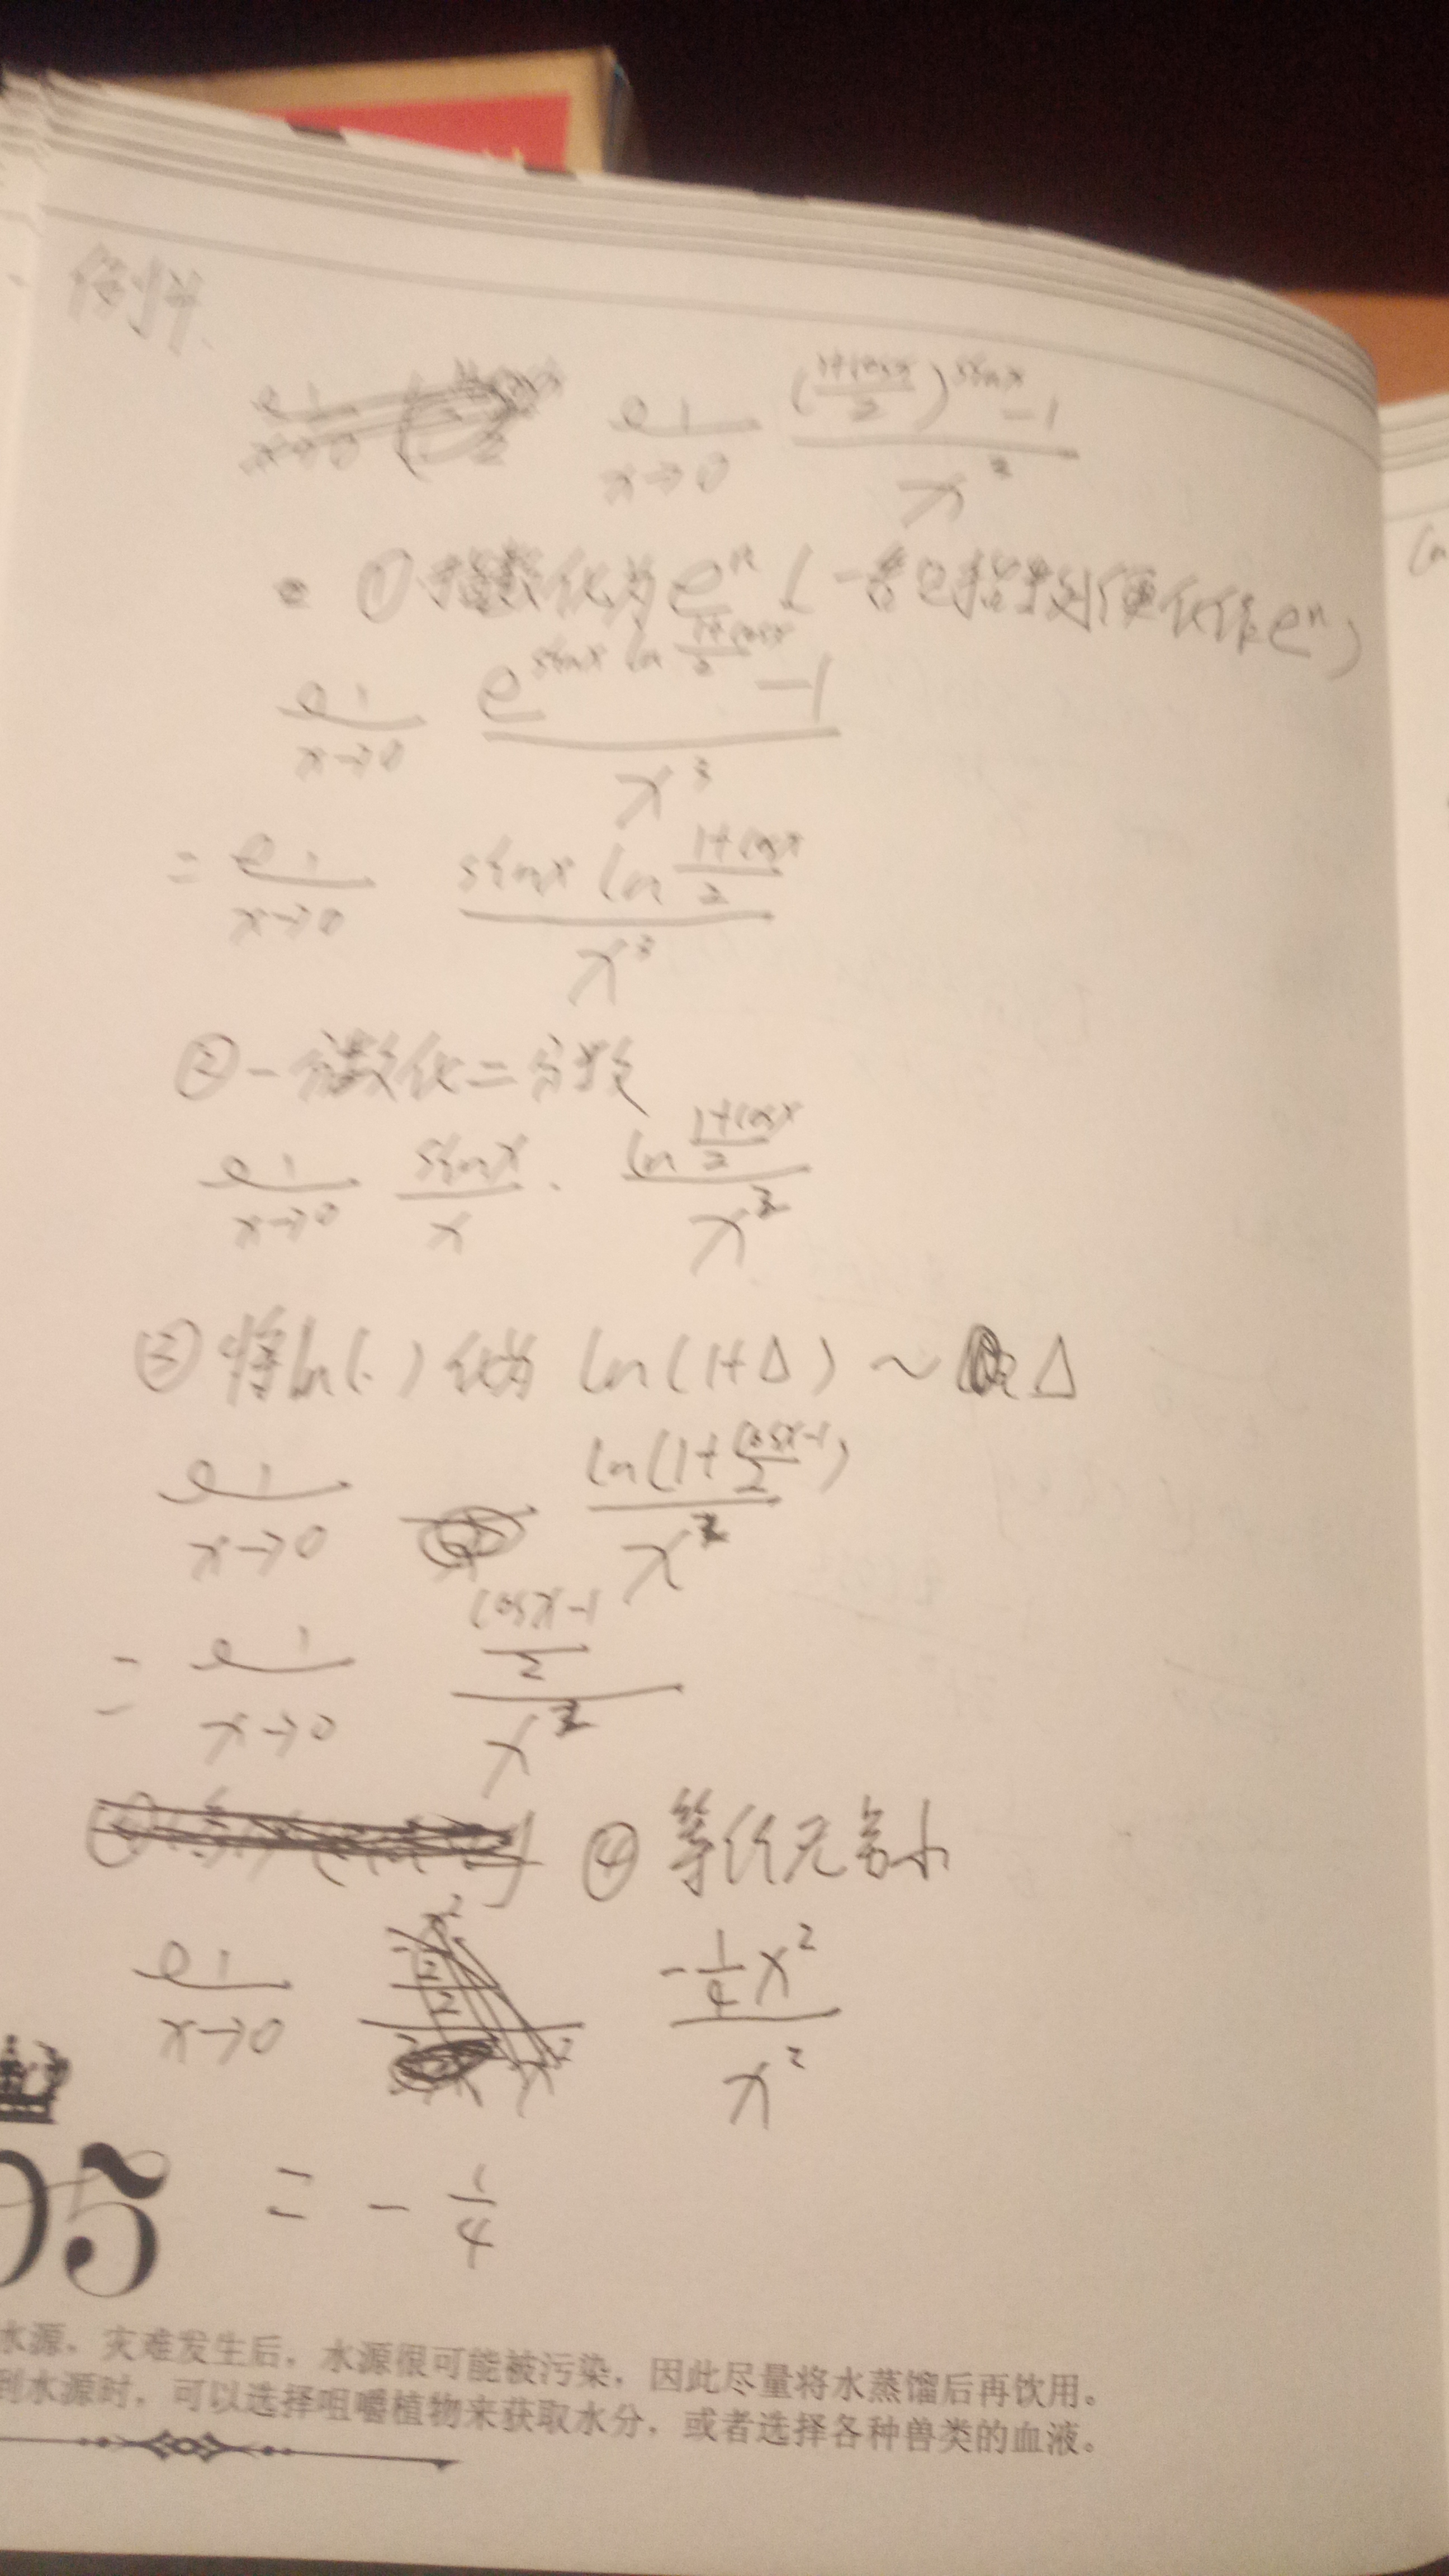 例4.
lim x→0 ((1+cosx)/2)^sinx -1 / x³
① 指数化为eⁿ (一看包指数则便化作eⁿ)
lim x→0 e^(sinx ln (1+cosx)/2) -1 / x³
= lim x→0 sinx ln (1+cosx)/2 / x³
② 一分数化二分数
lim x→0 sinx/x · ln (1+cosx)/2 / x²
③ 将ln(·)化为 ln(1+Δ) ~ Δ
lim x→0 ln(1+(cosx-1)/2) / x²
= lim x→0 (cosx-1)/2 / x²
④ 等价无穷小
lim x→0 -1/4 x² / x²
= - 1/4
05
水源,灾难发生后,水源很可能被污染,因此尽量将水蒸馏后再饮用。
到水源时,可以选择咀嚼植物来获取水分,或者选择各种兽类的血液。